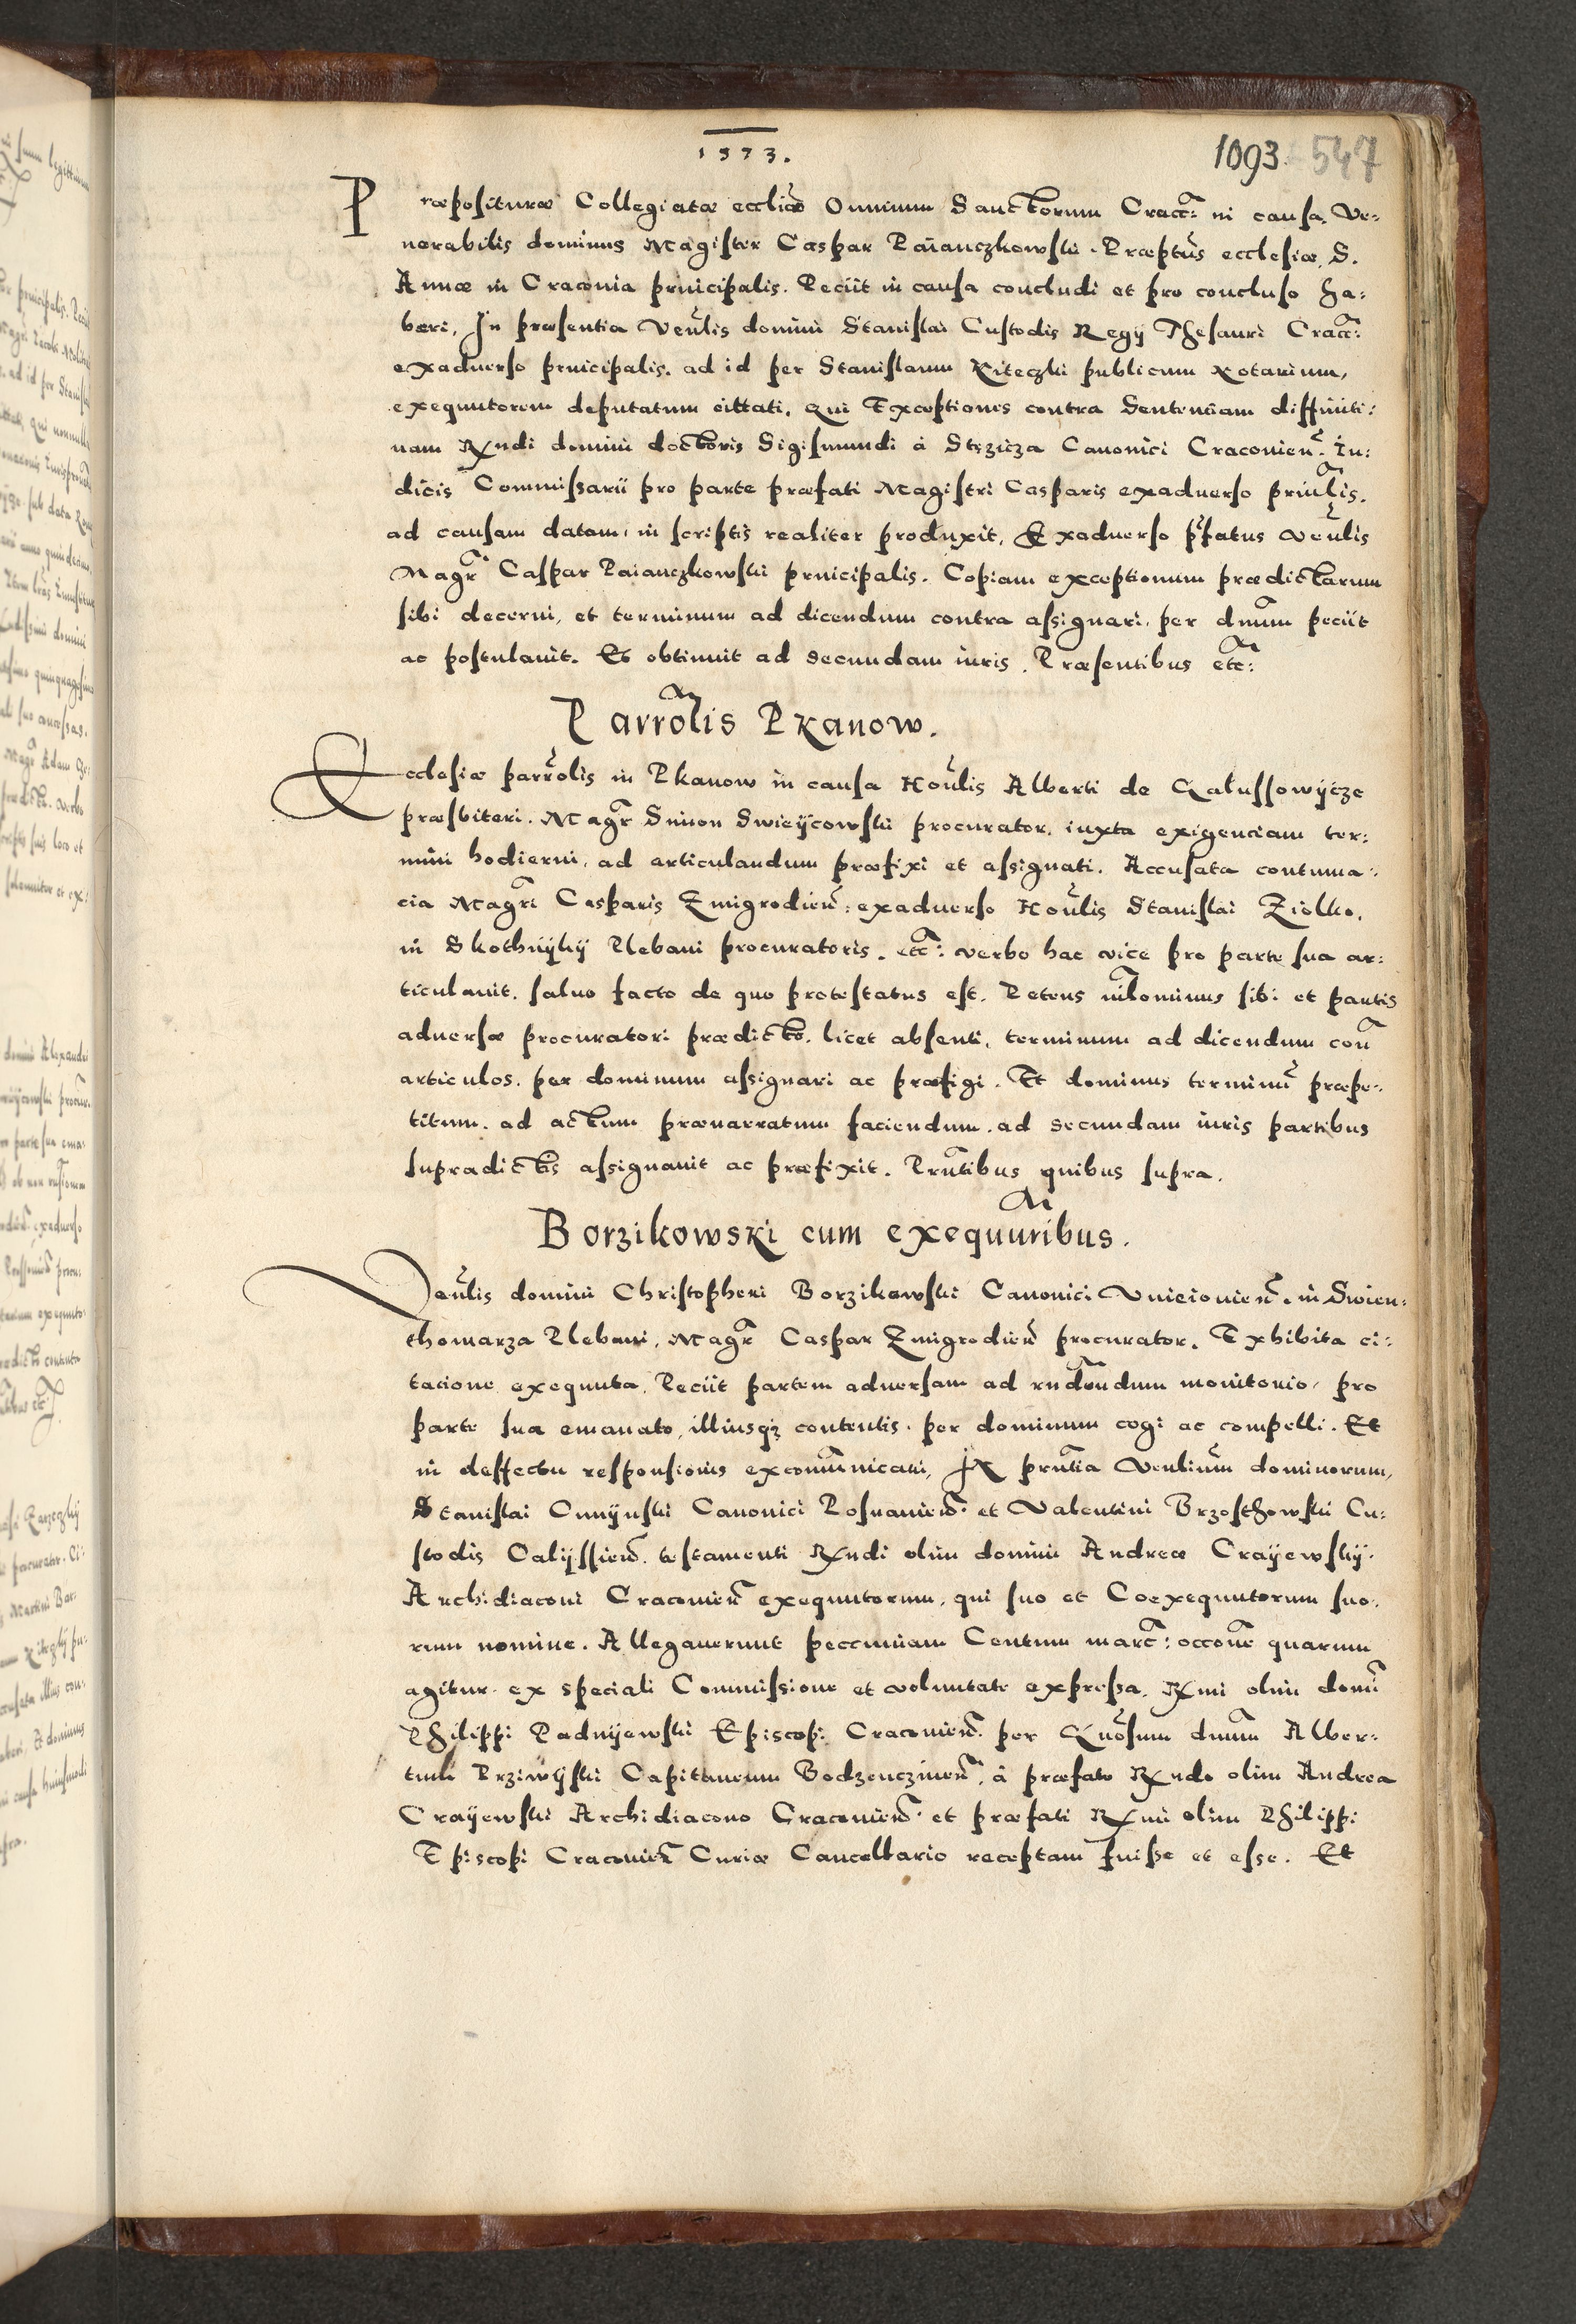 1573.
1093. 547
Præposituræ Collegiatæ eccliæ Omnium Sanctorum Cracc: in causa, Ve=
nerabilis dominus Magister Caspar Paianczkowski. Præptus ecclesiæ, S.
Annæ in Craconia principalis. Peciit in causa concludi et pro concluso ha=
beri, In præsentia Venlis domini Stanislai Custodis Regij Thesauri Cracc:
exaduerso principalis. ad id per Stanislaum Kiteczki publicum Notarium,
exequutorem deputatum cittati, qui Exceptiones contra Sententiam diffiniti=
uam Rndi domini doctoris Sigismundi à Stęzicza Canonici Craconien. Iu:
dicis Commissarii pro parte præfati Magistri Casparis exaduerso prinlis.
ad causam datam, in scriptis realiter produxit, Exaduerso pfatus Venlis
Magr Caspar Paianczkowski principalis. Copiam exceptionum prædictarum
sibi decerni, et terminum ad dicendum contra assignari, per dnum peciit
ac postulauit. Et obtinuit ad secundam iuris. Præsentibus etc:
Parrolis Pkanow.
Ecclesiæ parrolis in Pkanow in causa Honlis Alberti de Galussowycze
præsbiteri. Magr Simon Swieycowski procurator, iuxta exigenciam ter:
mini hodierni, ad articulandum præfixi et assignati. Accusata contuma:
cia Magri Casparis Zmigrodien: exaduerso Honlis Stanislai Ziolko,
in Skothnyky Plebani procuratoris. etc: verbo hac vice pro parte sua ar:
ticulauit, saluo facto de quo protestatus est. Petens nilominus sibi et partis
aduersæ procuratori prædicto, licet absenti, terminum ad dicendum con
articulos, per dominum assignari ac præfigi. Et dominus terminu præpe:
titum. ad actum prænarratum faciendum. ad secundam iuris partibus
supradictis assignauit ac præfixit. Prntibus quibus supra.
Borzikowski cum exequuribus.
Venlis domini Christopheri Borzikowski Canonici Vnieionien. in Swien:
thomarza Plebani, Magr Caspar Zmigrodien procurator. Exhibita ci:
tacione exequuta, Peciit partem aduersam ad rndendum monitorio, pro
parte sua emanato, illiusqz contentis, per dominum cogi ac compelli. Et
in deffectu responsionis excommunicati, In prntia Venlium dominorum,
Stanislai Cunynski Canonici Posnanien. et Valentini Brzosthowski Cu:
stodis Calyssien. testamenti Rndi olim domini Andreæ Crayewsky.
Archidiaconi Craconien exequutorum, qui suo et Coexequutorum suo.
rum nomine. Allegauerunt peccuniam Centum marc: occone quarum
agitur ex speciali Commissione et voluntate expressa, Rmi olim domi
Philippi Padnyewski Episcopi Craconien. per Gnosum dnum Alber:
tum Przivyski Capitaneum Bodzenczinen, à præfato Rndo olim Andrea
Crayewski Archidiacono Craconien. et præfati Rmi olim Philippi
Episcopi Craconien Curiæ Cancellario receptam fuisse et esse. Et